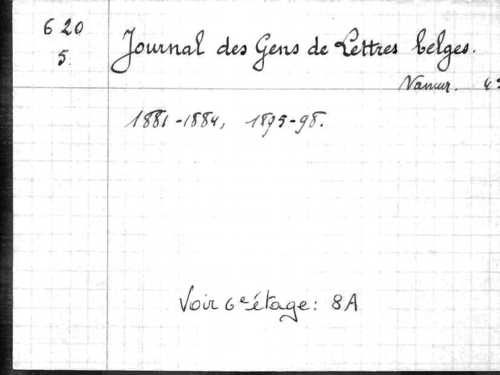 620
5.
Journal des Gens de Lettres belges.
Namur.
1881-1884, 1895-98.
Voir 6e étage: 8A